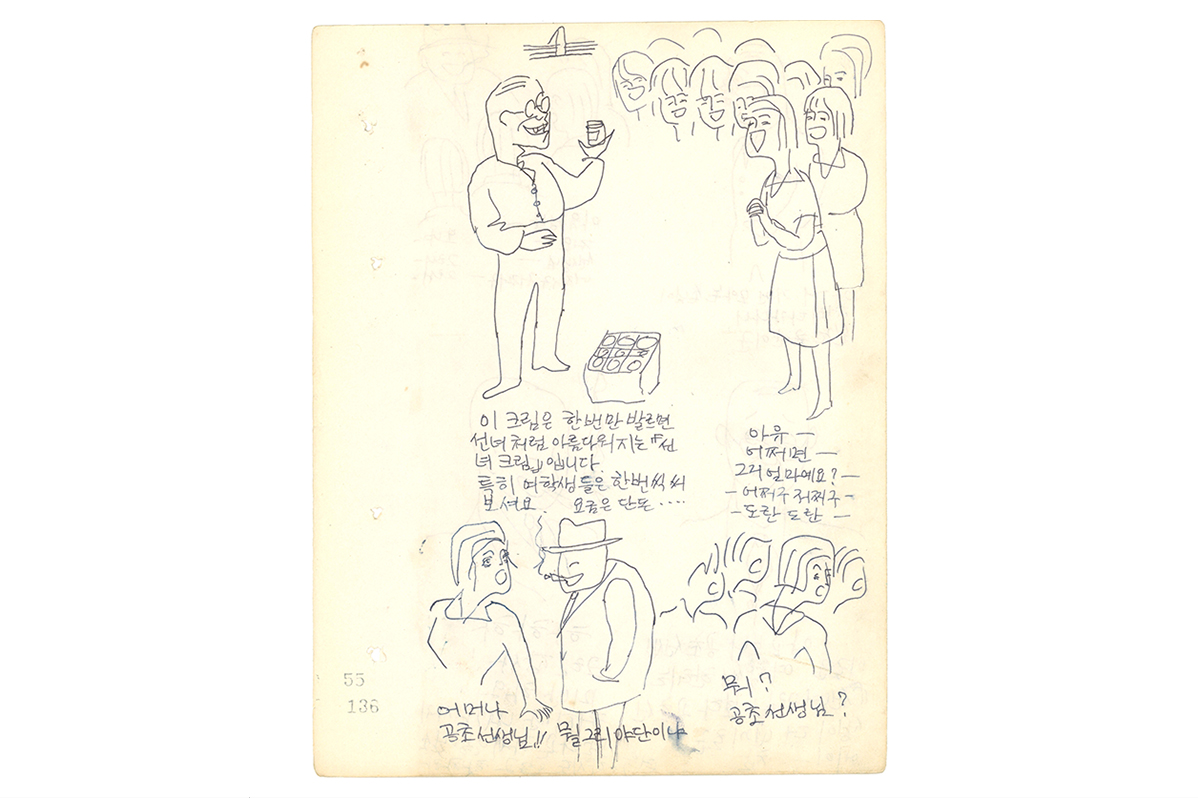 이 크림은 한번만 발르면
선녀처럼 아름다워지는 『선
녀 크림』입니다.
특히 여학생들은 한번씩 써
보셔요. 요금은 단돈 ····
아유 —
어쩌면 —
그거 얼마예요? —
— 어쩌구 저쩌구 —
— 도란 도란 —
어머나
공초선생님!!
뭘 그리 야단이냐
뭐?
공초선생님?
55
136